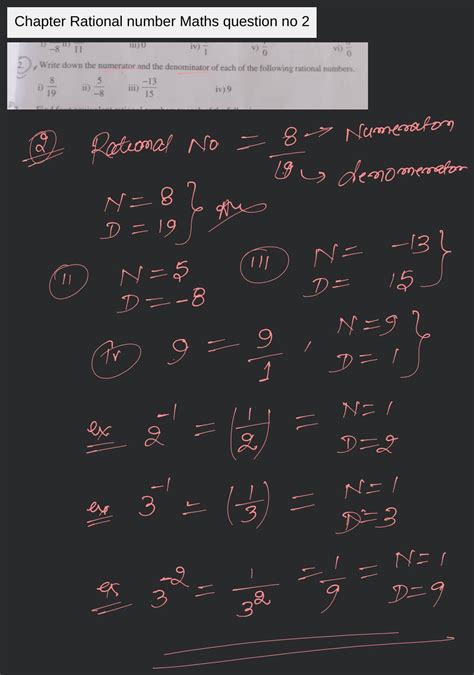 Chapter Rational number Maths question no 2
-8 11 iii) 0 iv) 1 v) 0 vi) 0
2. Write down the numerator and the denominator of each of the following rational numbers.
i) 8/19 ii) 5/-8 iii) -13/15 iv) 9
② Rational No = 8/19 → Numerator
↳ denomerator
N = 8
D = 19 } Ans
(ii) N = 5
D = -8
(iii) N = -13
D = 15 }
(iv) 9 = 9/1 , N = 9
D = 1 }
ex 2^-1 = (1/2) = N = 1
D = 2
ex 3^-1 = (1/3) = N = 1
D = 3
ex 3^-2 = 1/3^2 = 1/9 = N = 1
D = 9